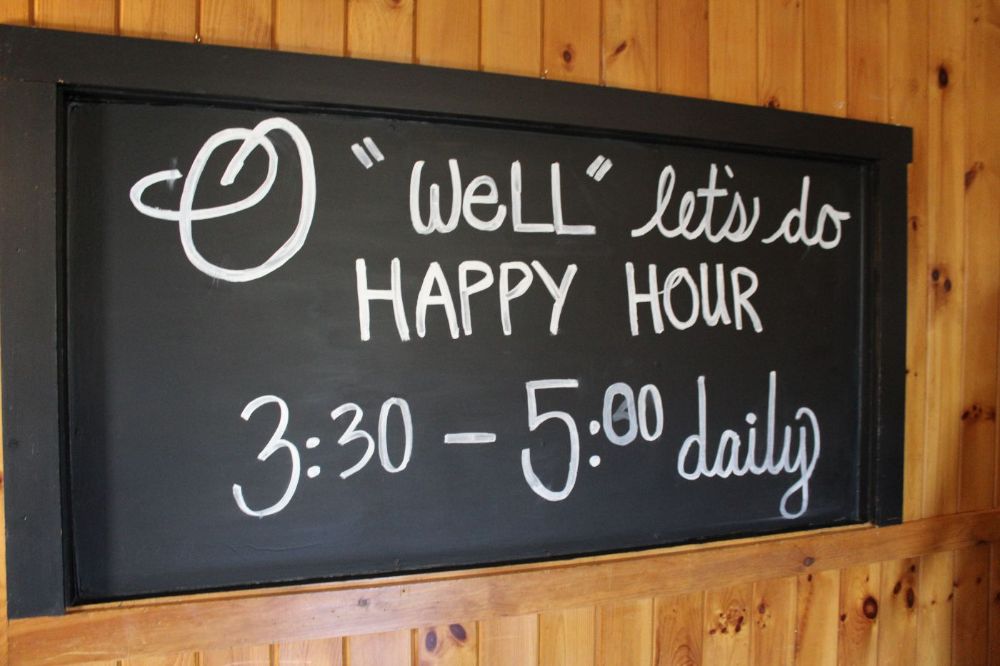 O "WeLL" let's do
HAPPY HOUR
3:30 - 5:00 daily